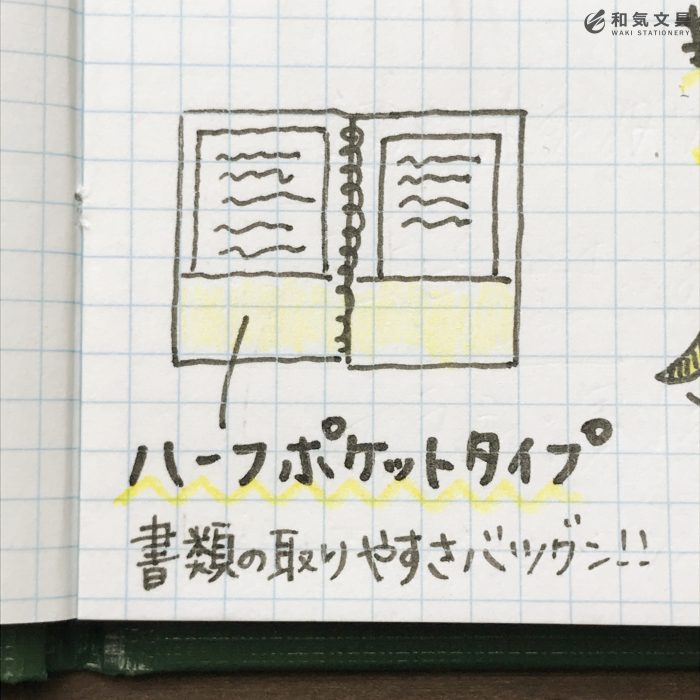 和気文具
WAKI STATIONERY
ハーフポケットタイプ
書類の取りやすさバツグン!!